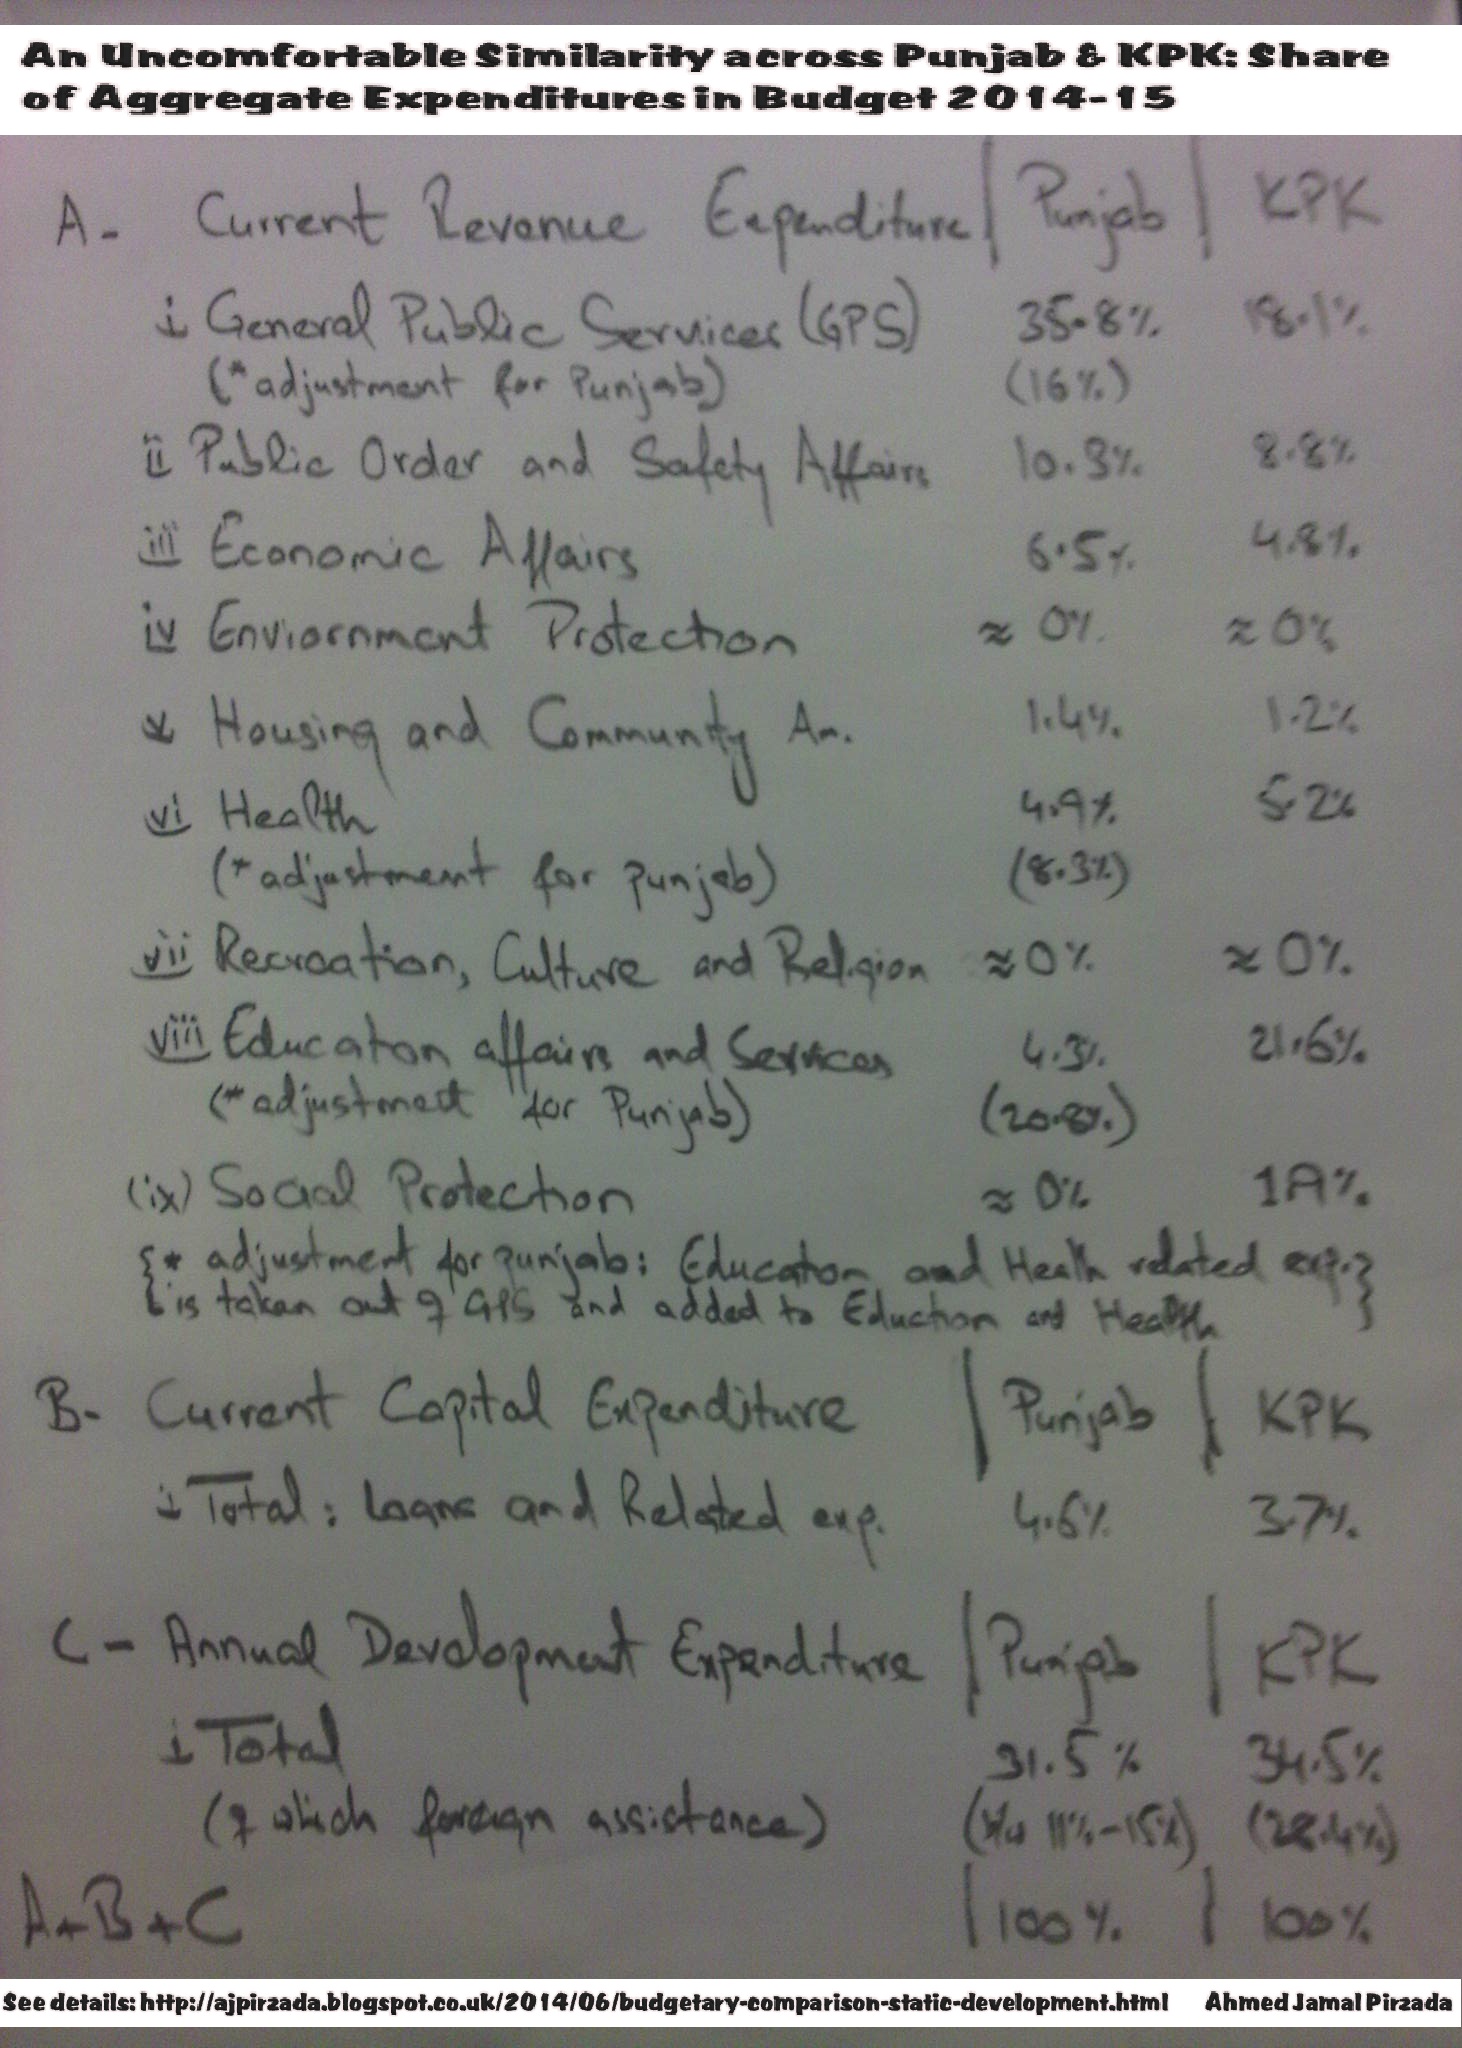 An Uncomfortable Similarity across Punjab & KPK: Share
of Aggregate Expenditures in Budget 2014-15
A- Current Revenue Expenditure | Punjab | KPK
i General Public Services (GPS) 35.8% 18.1%
(*adjustment for Punjab) (16%)
ii Public Order and Safety Affairs 10.3% 8.8%
iii Economic Affairs 6.5% 4.8%
iv Enviornment Protection ≈ 0% ≈ 0%
v Housing and Community Am. 1.4% 1.2%
vi Health 4.9% 5.2%
(*adjustment for punjab) (8.3%)
vii Recreation, Culture and Religion ≈0% ≈0%
viii Education affairs and Services 4.3% 21.6%
(*adjustment for Punjab) (20.8%)
(ix) Social Protection ≈ 0%
{* adjustment for punjab: Education and Health related exp.}
{is taken out of GPS and added to Eduction and Health}
B- Current Capital Expenditure | Punjab | KPK
i Total: Loans and Related exp. 4.6% 3.7%
C- Annual Development Expenditure | Punjab | KPK
i Total 31.5% 34.5%
(of which foreign assistance) 11%-15%) (28.4%)
A+B+C | 100% | 100%
See details: http://ajpirzada.blogspot.co.uk/2014/06/budgetary-comparison-static-development.html Ahmed Jamal Pirzada